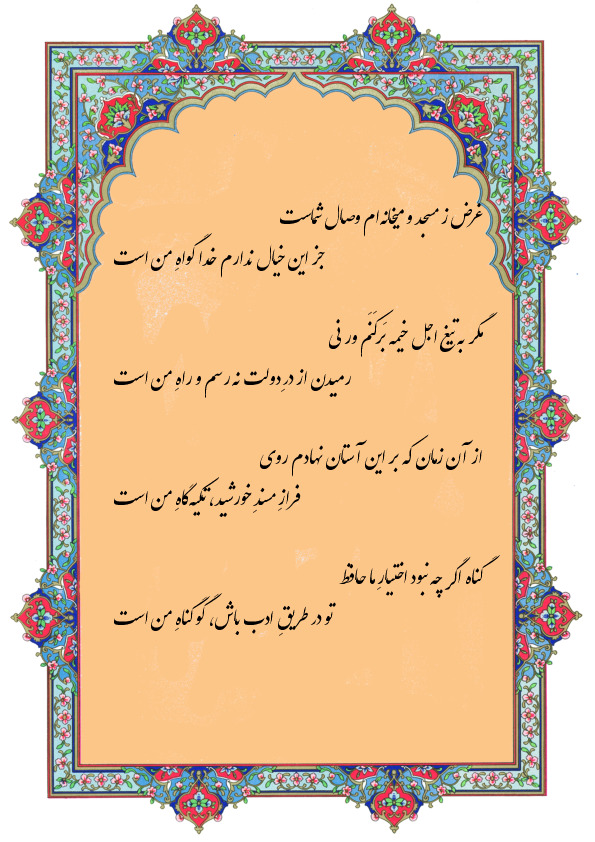 غرض ز مسجد و میخانه‌ام وصال شماست
جز این خیال ندارم خدا گواهِ من است
مگر به تیغ اجل خیمه بَرکَنَم ور نی
رمیدن از درِ دولت نه رسم و راهِ من است
از آن زمان که بر این آستان نهادم روی
فرازِ مسندِ خورشید، تکیه‌گاهِ من است
گناه اگر چه نبود اختیارِ ما حافظ
تو در طریقِ ادب باش، گو گناهِ من است